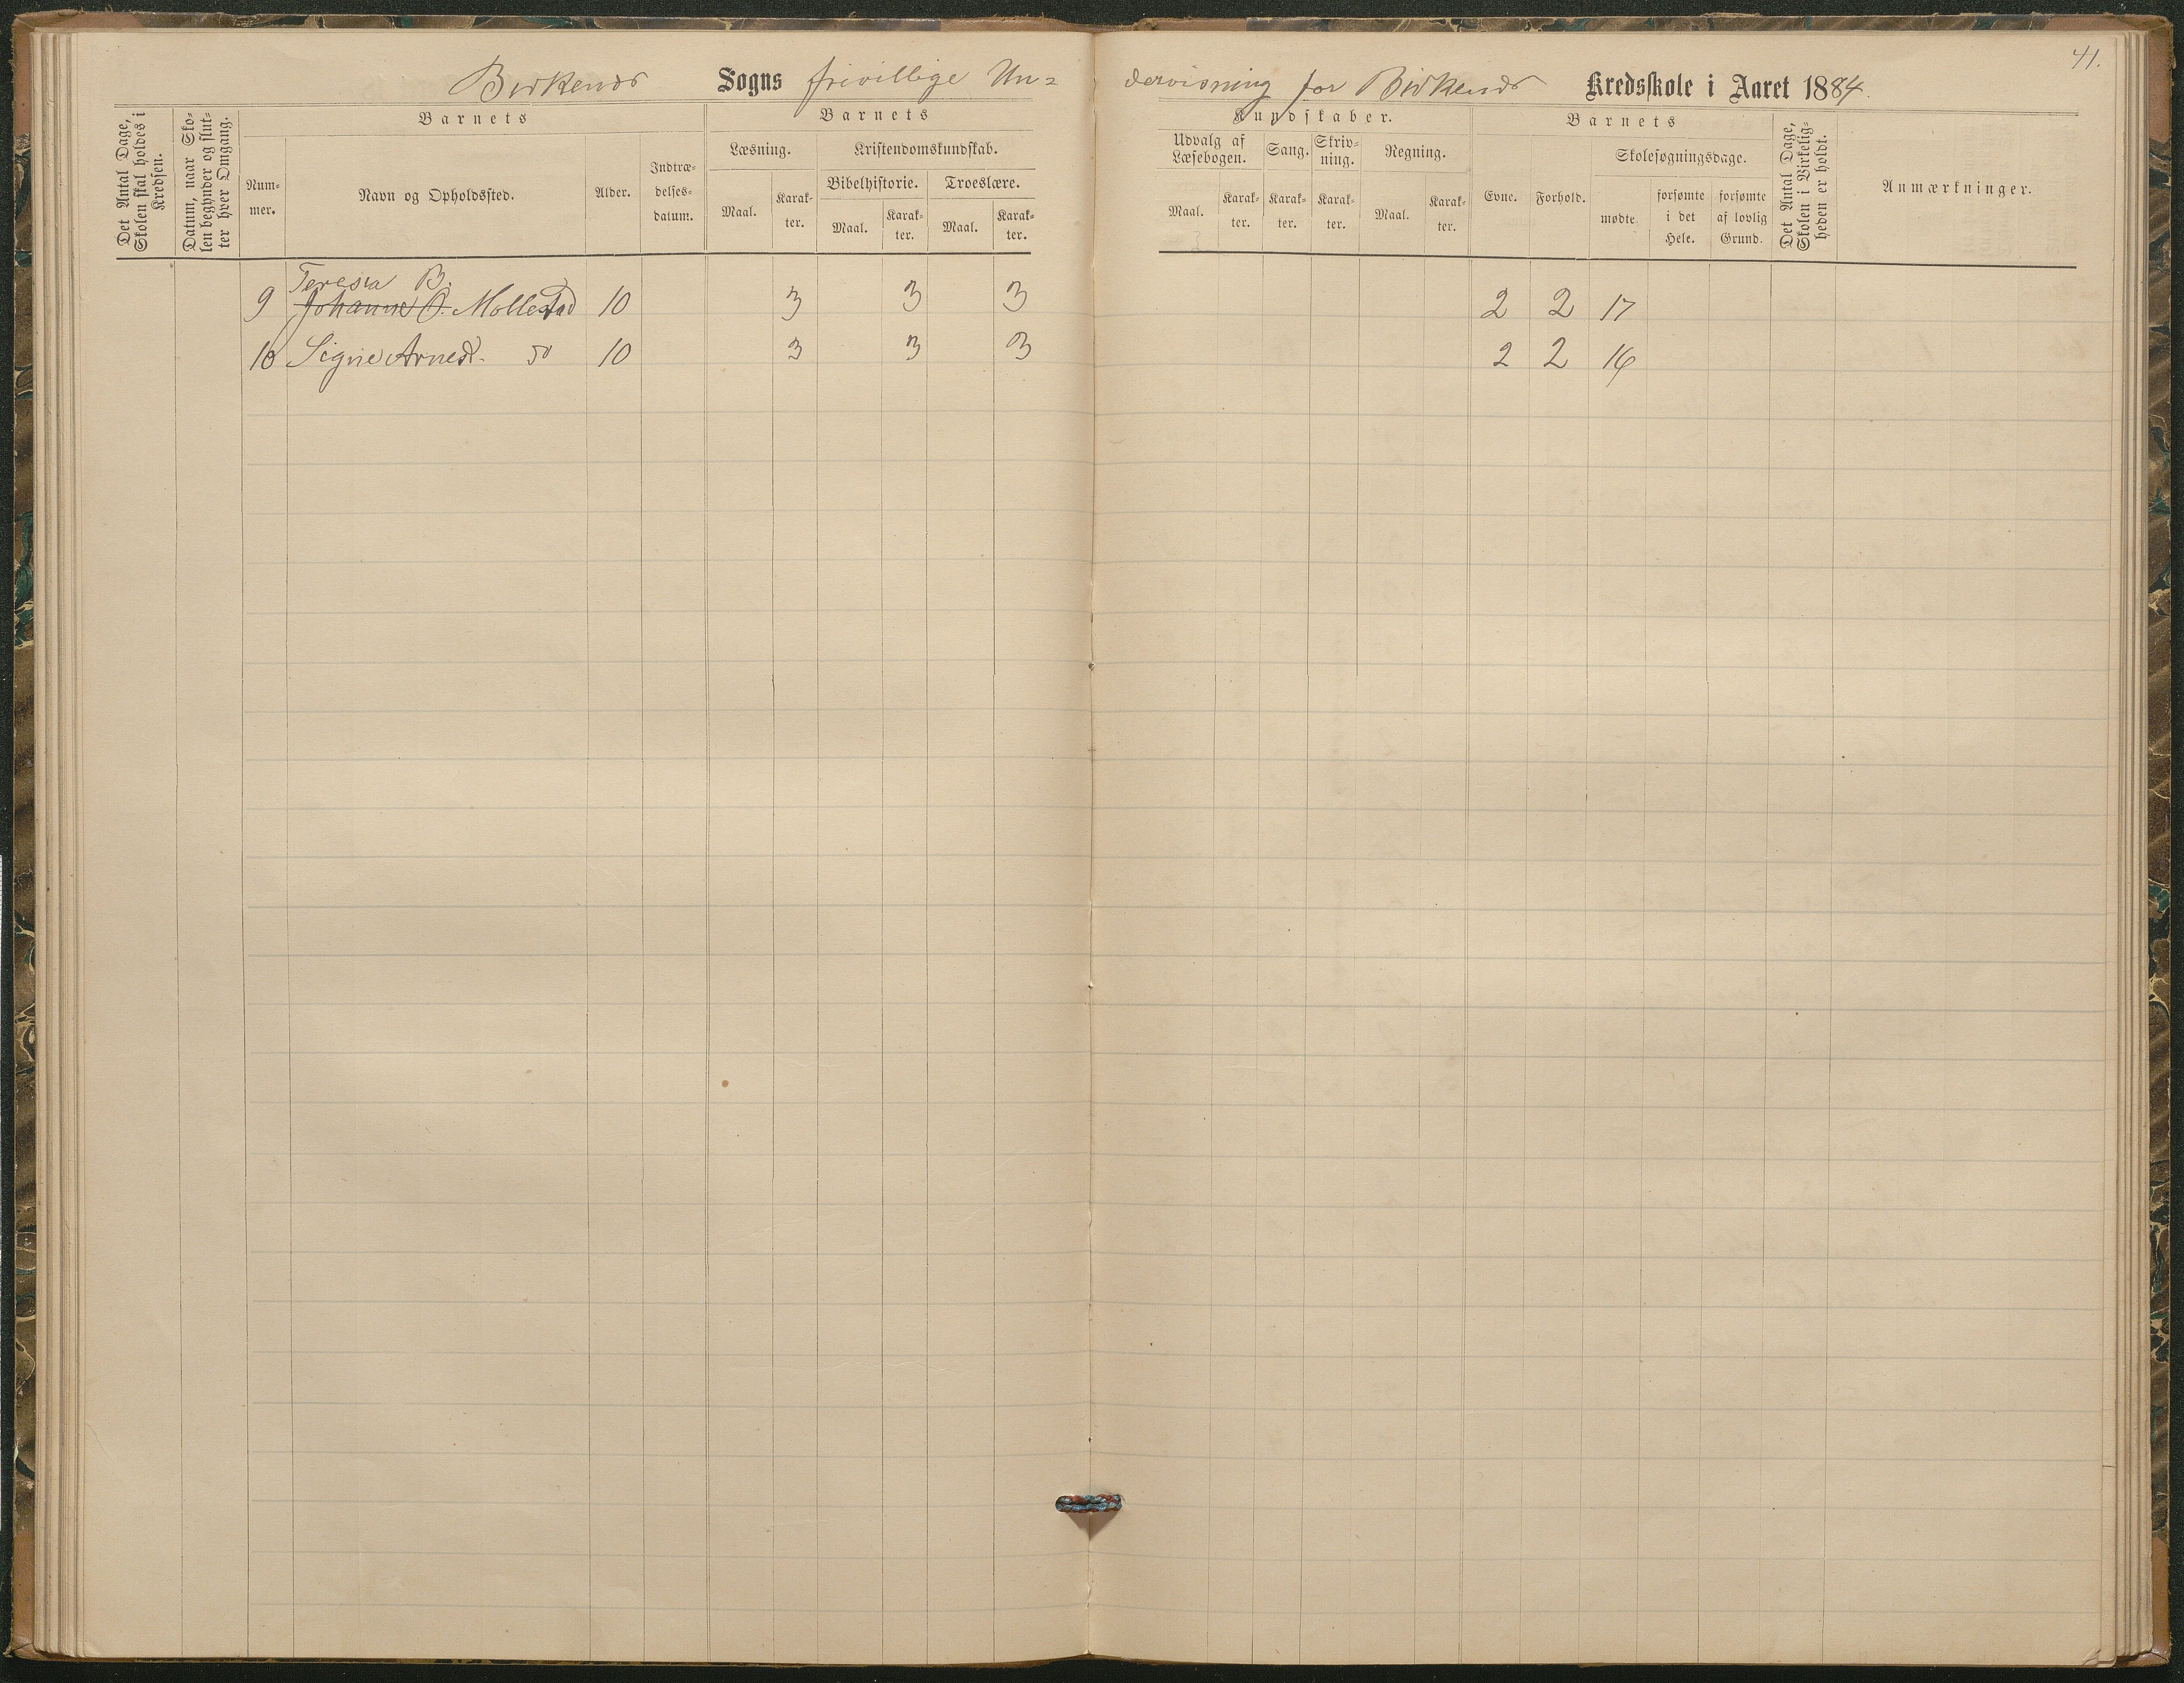 41.
Birkenes Sogns frivillige Un= dervisning for Birkenes Kredsskole i Aaret 1884.
Det Antal Dage, Skolen skal holdes i Kredsen.
Datum, naar Sko- len begynder og slut- ter hver Omgang.
Barnets
Num- mer.
Navn og Opholdssted.
Alder.
Indtræ- delses- datum.
Barnets
Læsning.
Maal.
Karak- ter.
Kristendomskundskab.
Bibelhistorie.
Maal.
Karak- ter.
Troeslære.
Maal.
Karak- ter.
Kundskaber.
Udvalg af Læsebogen.
Maal.
Karak- ter.
Sang.
Karak- ter.
Skriv- ning.
Karak- ter.
Regning.
Maal.
Karak- ter.
Barnets
Evne.
Forhold.
Skolesøgningsdage.
mødte.
forsømte i det Hele.
forsømte af lovlig Grund.
Det Antal Dage, Skolen i Virkelig- heden er holdt.
Anmærkninger.
Teresia B.
9 Johanne O. Mollestad 10 3 3 3 2 2 17
10 Signe Arnesd. 10 3 3 3 2 2 16